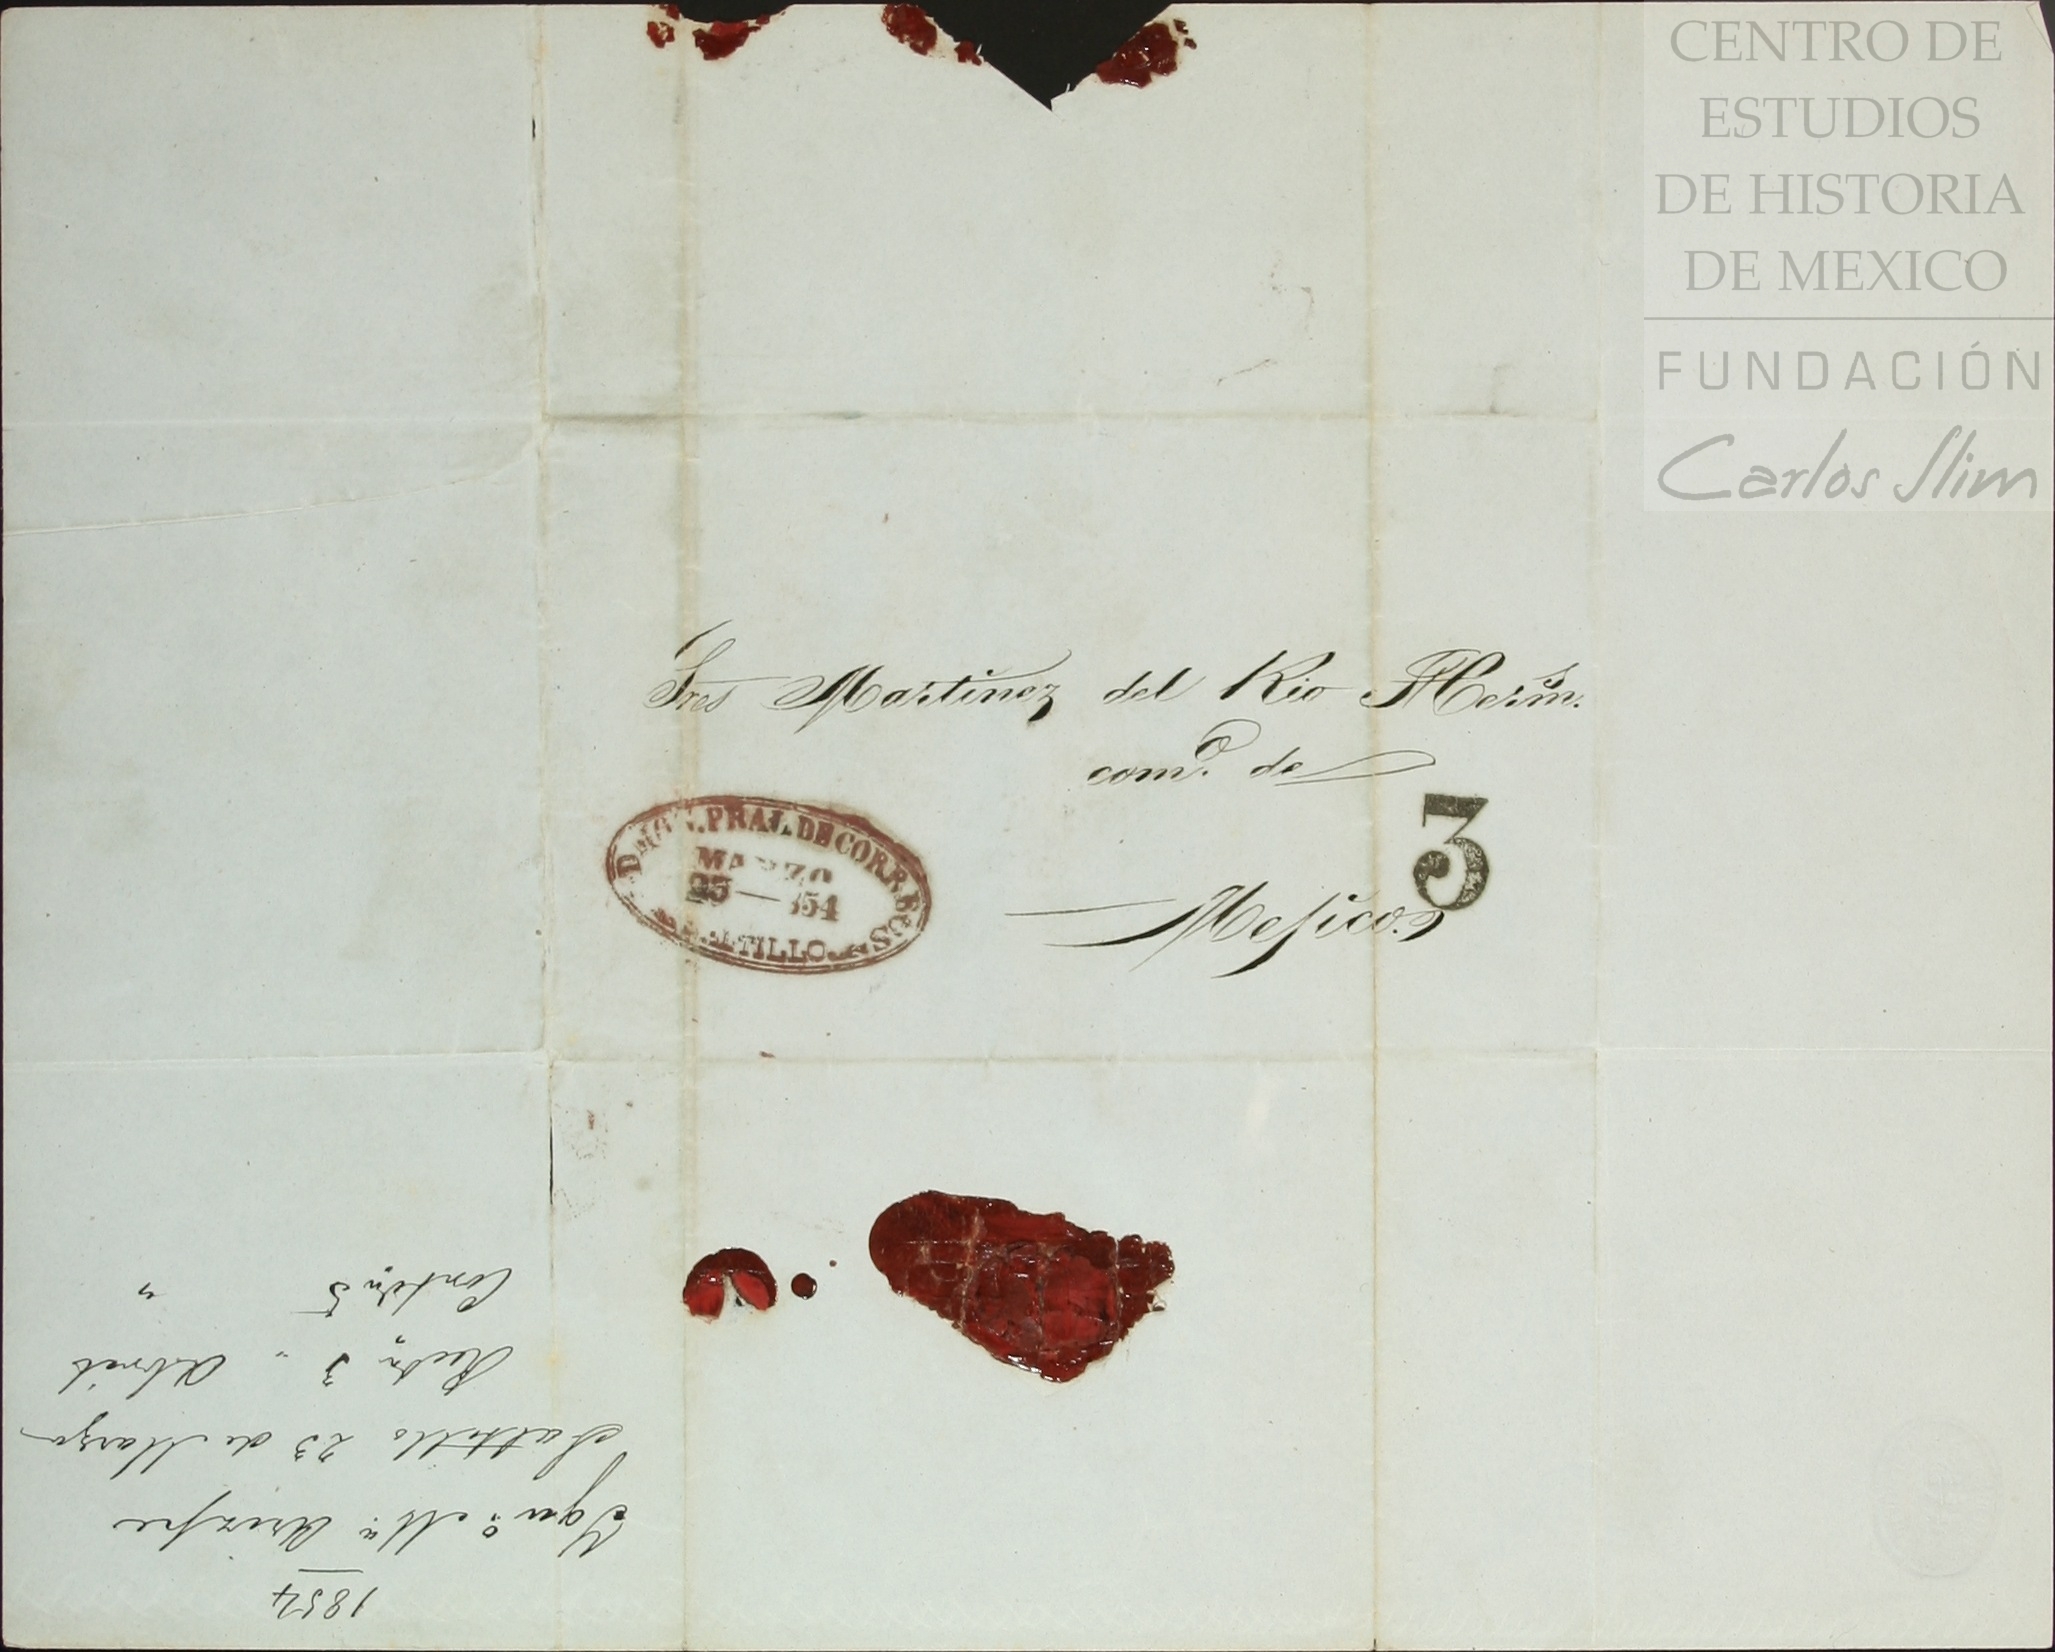 CENTRO DE
ESTUDIOS
DE HISTORIA
DE MEXICO
FUNDACIÓN
Carlos Slim
Sres Martinez del Rio Herms.
como. de
Mejico.
3
DMON. PRAL. DE CORREOS
MARZO
23 — 854
SALTILLO
1854
Igno. Ma. Arizpe
Saltillo 23 de Marzo
Recda 3 " Abril
Contda 5 "